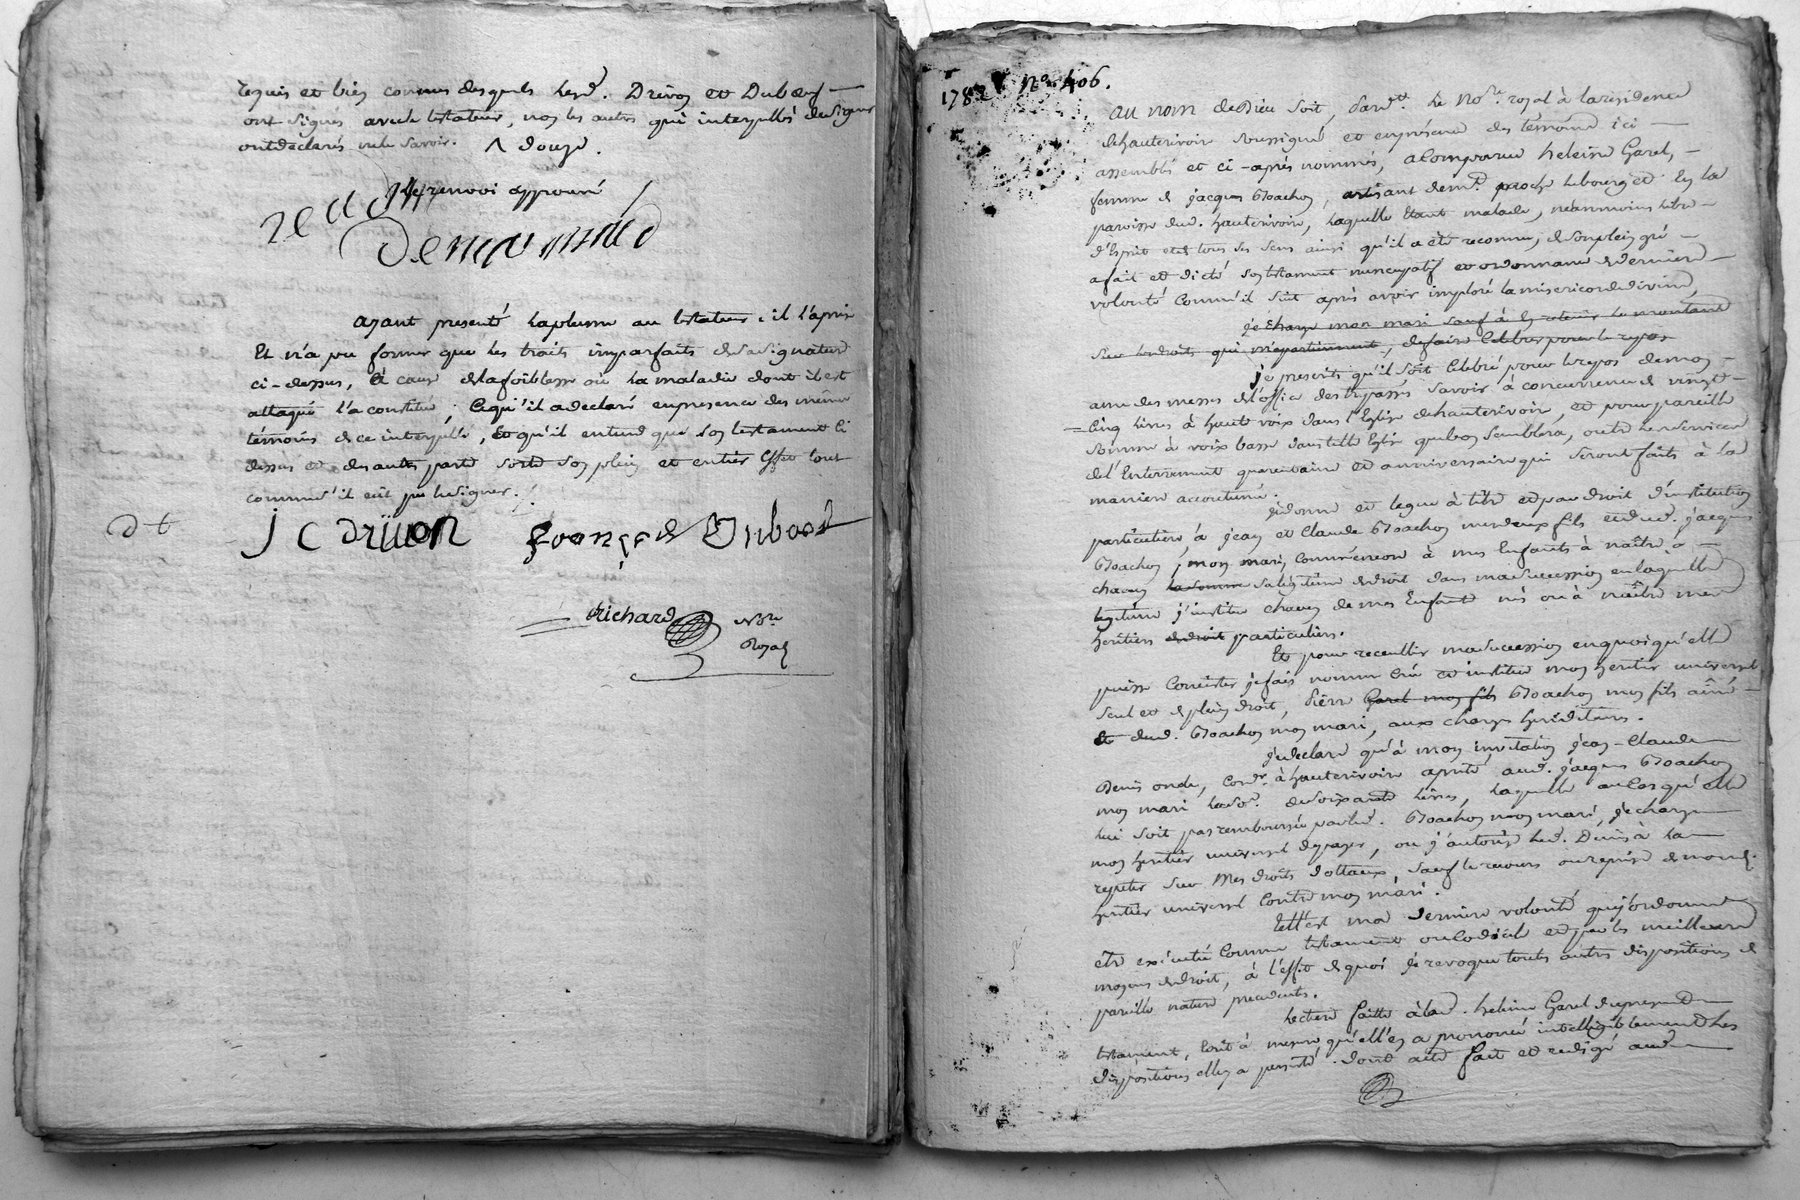 requis et bien connus desquels lesd. Drivon et Dubost
ont signés avec le testateur, non les autres qui interpellés de signer
ont declarés ne le savoir. Λ douze.
renvoi approuvé
ayant presenté la plume au testateur, il l'a prise
Et n'a pu former que les traits imparfaits de sa signature
ci-dessus, à cause de la foiblesse où la maladie dont il est
attaqué l'a constitué; Ce qu'il a declaré en presence des mêmes
témoins de ce interpellé, Et qu'il entend que son testament ci
dessus et des autres parts sorte son plein et entier effet tout
comme s'il eût pu le signer.
J C drivon françois Dubost
Richard Nre
Royal
1782 No. 406.
au nom de Dieu soit, Pardt. le Nore. royal à la residence
de hauterivoire soussigné et en presence des témoins ici
assemblés et ci-après nommés, a Comparue heleine Garel,
femme de jacques Moachon, artisant demt. proche le bourg et En la
paroisse dud. hauterivoire, laquelle Etant malade, néanmoins libre
d'Esprit et de tous ses sens ainsi qu'il a été reconnu, de son plein gré
a fait et dicté son testament nuncupatif et ordonnance de derniere
volonté Comme il suit après avoir imploré la misericorde divine,
je charge mon mari sauf à en retenir le montant
sur les droits qui m'apartiennent, de faire Celebrer pour le repos
je prescrits qu'il soit Celebré pour le repos de mon
ame des messes de l'office des trepassés savoir à concurrence de vingt
Cinq livres à haute voix dans l'Eglise de hauterivoire, et pour pareille
somme à voix basse dans telle Eglise que bon semblera, outre les services
de l'Enterrement quarantaine et anniversaire qui seront faits à la
maniere accoutumée.
je donne et legue à titre et par droit d'institution
particuliere, à jean et Claude Moachon mes deux fils et dud. jacques
Moachon, mon mari, Comme encore à mes Enfants à naître, à
chacun la somme sa légitime de droit dans ma succession en laquelle
legitime j'institue chacun de mes Enfants nés ou à naître mes
heritiers de droit particuliers.
Et pour recueillir ma succession en quoi qu'elle
puisse Consister je fais nomme Crée et institue mon heritier universel
seul et de plein droit, Pierre Garel mon fils Moachon mon fils ainé
Et dud. Moachon mon mari, aux charges hereditaires.
je declare qu'à mon invitation jean-Claude
Denis onde, Cordr. à hauterivoire a preté aud. jacques Moachon
mon mari la So. de soixante livres, laquelle au Cas qu'elle
lui soit pas remboursée par led. Moachon mon mari, je charge
mon heritier universel de payer, ou j'autorise led. Denis à la
repeter sur Mes droits dottaux, sauf le recours ou reprise de mond.
heritier universel Contre mon mari.
telle est ma derniere volonté que j'ordonne
être executée Comme testament ou Codicile et par les meilleurs
moyens de droit, à l'effet de quoi je revoque touts autres dispositions de
pareille nature precedents.
lecture faitte à lad. heleine Garel du present
testament, tout à mesure qu'elle en a prononcé intelligiblement les
dispositions elle y a persisté. dont acte fait et redigé aud.